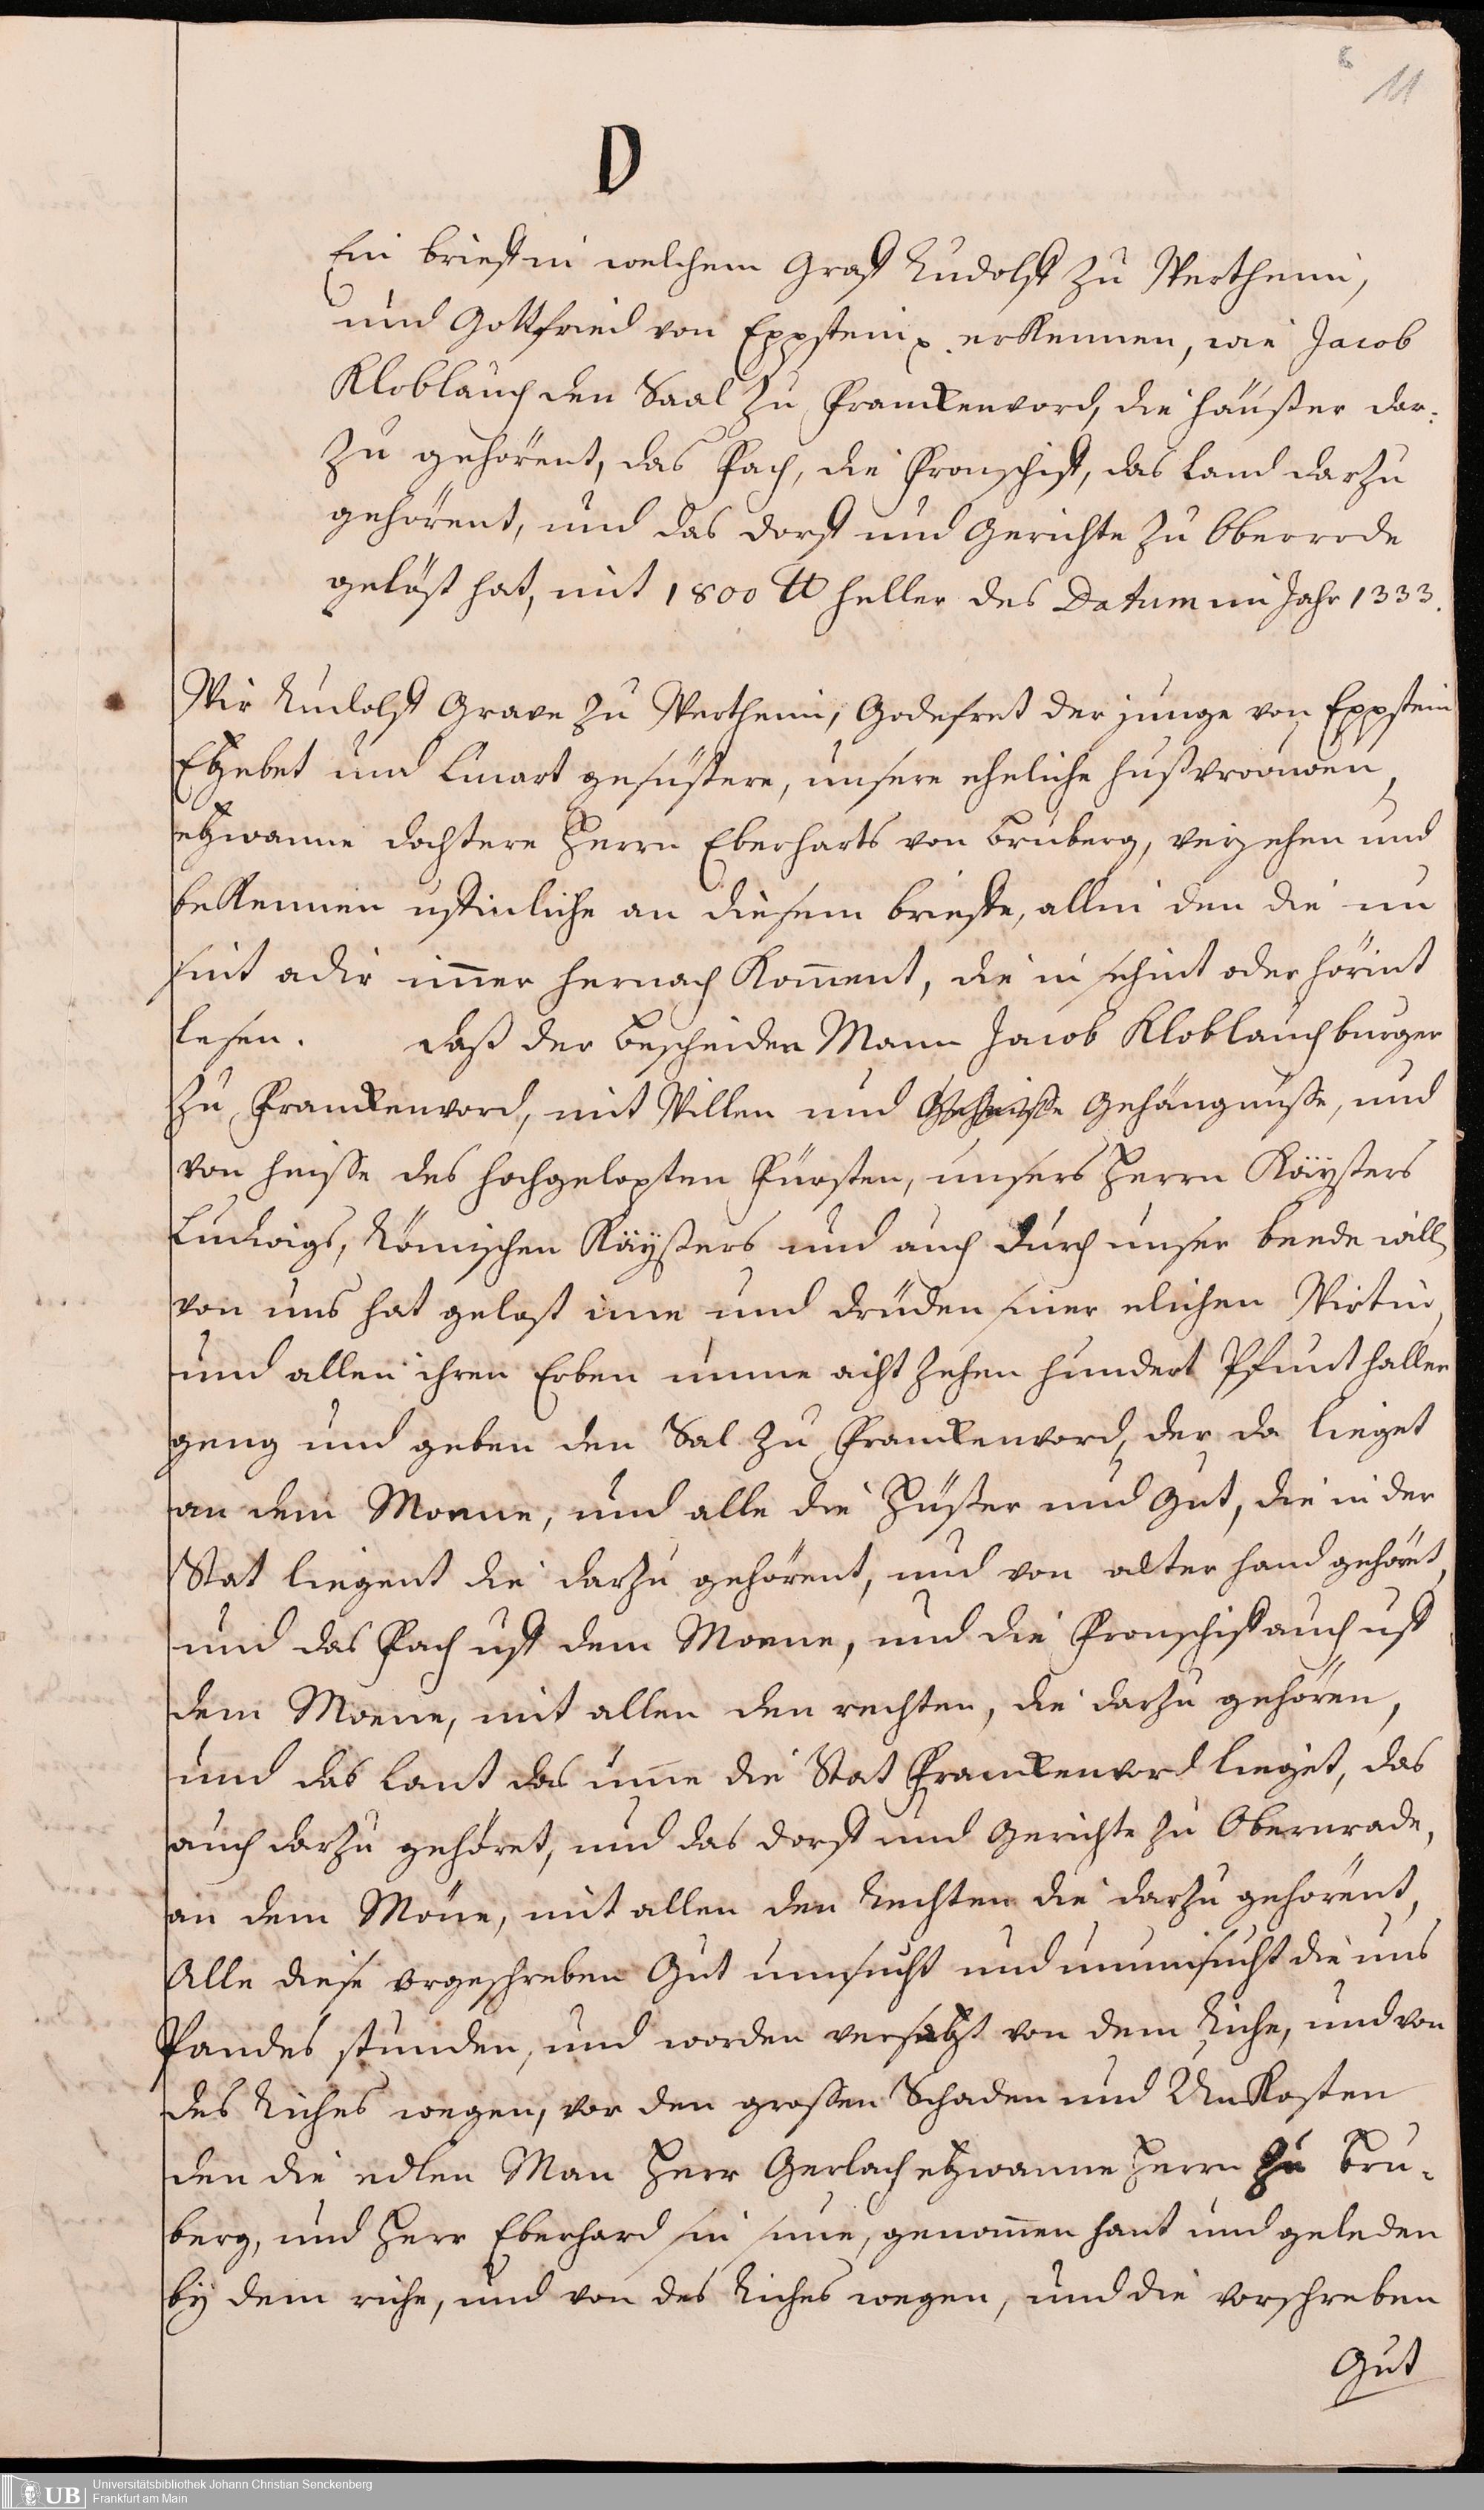 6
11
D
Ein brieff in welchem Graff Rudolff zu Wertheim,
und Gottfried von Eppstein p. erkennen, wie Jacob
Kloblauch den Saal zu Franckenvord, die häußer dar-
zu gehörent, das Fach, die Fronschiff, das Land darzu
gehörent, und das dorff und Gerichte zu Oberrode
gelöst hat, mit 1800 ℔ heller des Datum im Jahr 1333.
Wir Rudolff Grave zu Wertheim, Godefret der junge von Eppstein
Elzebet und Luicart gesustere, unsere eheliche hußvrouwen,
etzwanne dochtere Herrn Eberharts von Bruberg, verzehen und
bekennen uffinliche an diesem brieffe, allin den die nu
sint adir im̄er hernach kom̄ent, die in sehint oder hörint
lesen. daß der bescheiden Mann Jacob Kloblauch burger
zu Franckenvord, mit Willen und Gehängnüsse, und
von heisse des hochgelopten Fürsten, unsers Herrn Käysters
Ludwigs, Römischen Käysters und auch durch unser beede will
von uns hat gelost ime und drüden siner elichen Wirtin,
und allen ihren Erben umme acht zehen hundert Pfunt haller
geng und geben den Sal zu Franckenvord, der da lieget
an dem Moene, und alle die Hußer und Gut, die in der
Stat liegent die darzu gehörent, und von alter hand gehöret,
und das Fach uff dem Moene, und die Fronschiff auch uff
dem Moene, mit allen den rechten, die darzu gehören,
und das Lant das um̄e die Stat Franckenvord lieget, das
auch darzu gehöret, und das dorff und Gerichte zu Obernrade,
an dem Möne, mit allen den Rechten die darzu gehörent,
Alle diese vorgeschreben Gut umsucht und unumsucht die uns
Pandes stunden, und worden versatzt von dem Riche, und von
des Riches wegen, vor den grossen Schaden und Unkosten
den die edlen Man Herr Gerlach etzwanne Herrn zu Bru-
berg, und Herr Eberhard sin sune, genom̄en hant und geleden
by dem riche, und von des Riches wegen, und die vorschreben
Gut
UB Universitätsbibliothek Johann Christian Senckenberg
Frankfurt am Main